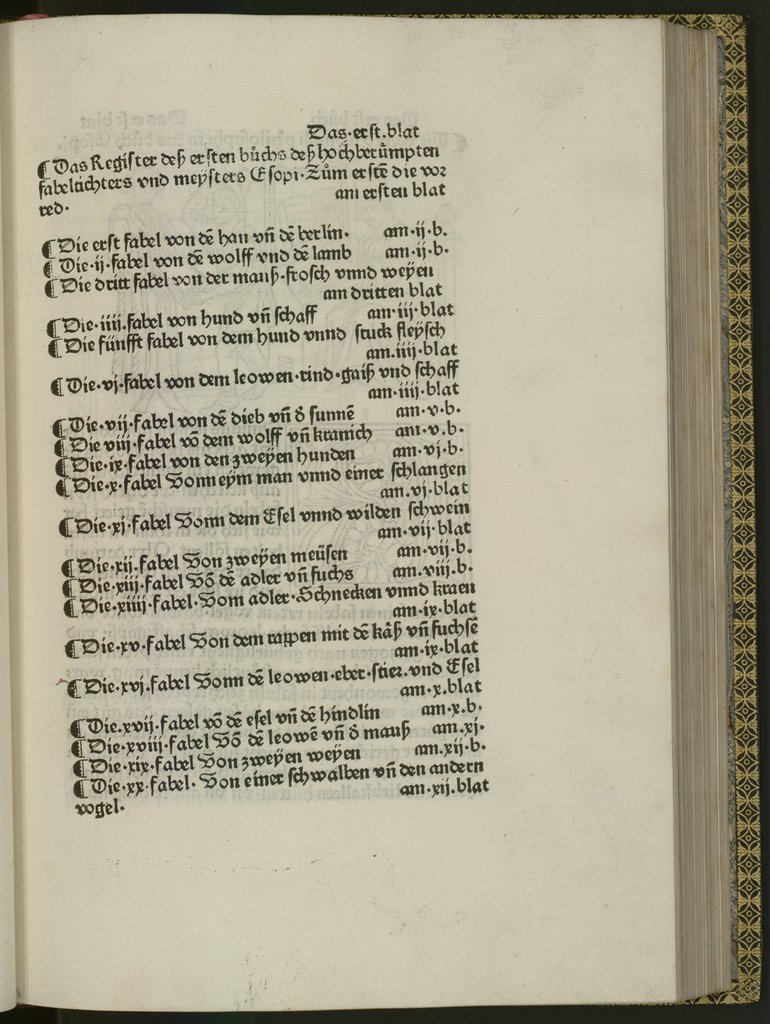 Das·erst·blat
¶ Das Register deß ersten bůchs deß hochberümpten
fabeltichters vnd meysters Esopi·Zům erstē die vor
red· am ersten blat
¶ Die erst fabel von dē han vñ dē berlin· am·ij·b·
¶ Die·ij·fabel von dē wolff vnd dē lamb am·ij·b·
¶ Die dritt fabel von der mauß·frosch vnnd weyen
am dritten blat
¶ Die·iiij·fabel von hund vñ schaff am·iij·blat
¶ Die fünfft fabel von dem hund vnnd stuck fleysch
am·iiij·blat
¶ Die·vj·fabel von dem leowen·rind·gaiß vnd schaff
am·iiij·blat
¶ Die·vij·fabel von dē dieb vñ ð sunnē am·v·b·
¶ Die viij·fabel vō dem wolff vñ kranich am·v·b·
¶ Die·ix·fabel von den zweyen hunden am·vj·b·
¶ Die·x·fabel Vonn eym man vnnd einer schlangen
am·vj·blat
¶ Die·xj·fabel Vonn dem Esel vnnd wilden schwein
am·vij·blat
¶ Die·xij·fabel Von zweyen meüsen am·vij·b·
¶ Die·xiij·fabel Vō dē adler vñ fuchs am·viij·b·
¶ Die·xiiij·fabel·Vom adler·Schnecken vnnd kraen
am·ix·blat
¶ Die·xv·fabel Von dem rappen mit dē kåß vñ fuchsē
am·ix·blat
¶ Die·xvj·fabel Vonn dē leowen·eber·stier·vnd Esel
am·x·blat
¶ Die·xvij·fabel vō dē esel vñ dē hindlin am·x·b·
¶ Die·xviij·fabel Vō dē leowē vñ ð mauß am·xj·
¶ Die·xix·fabel Von zweyen weyen am·xij·b·
¶ Die·xx·fabel·Von einer schwalben vñ den andern
vogel· am·xij·blat